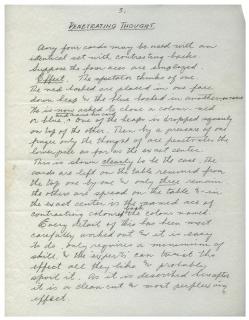 3.
PENETRATING THOUGHT.
Any four cards may be used with an
identical set with contrasting backs
Suppose the four aces are employed.
Effect. The spectator thinks of one
The red backed are placed in one face
down heap & the blue backed in another
He is now asked to choose a colour - red
or blue & One of the heaps is dropped squarely
on top of the other. Then by a pressure of one
finger only the thought of ace penetrates the
lower pile as far as the exact center.
This is shown clearly to be the case. The
cards are left on the table removed from
the top one by one & only three remain
the others are spread on the table & in
the exact center is the named ace of
contrasting colour the colour named
Every detail of this has been most
carefully worked out & it is easy
to do, only requires a minimum of
skill & the experts can twist the
effect all they like & probably
spoil it. As it is described hereafter
it is a clean cut & most perplexing
effect.